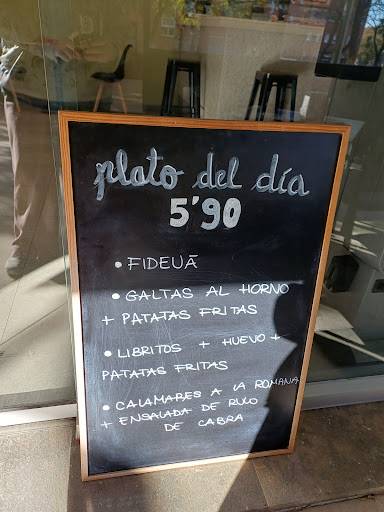 plato del día
5'90
• FIDEUÀ
• GALTAS AL HORNO
+ PATATAS FRITAS
• LIBRITOS + HUEVO +
PATATAS FRITAS
• CALAMARES A LA ROMANA
+ ENSALADA DE RULO
DE CABRA